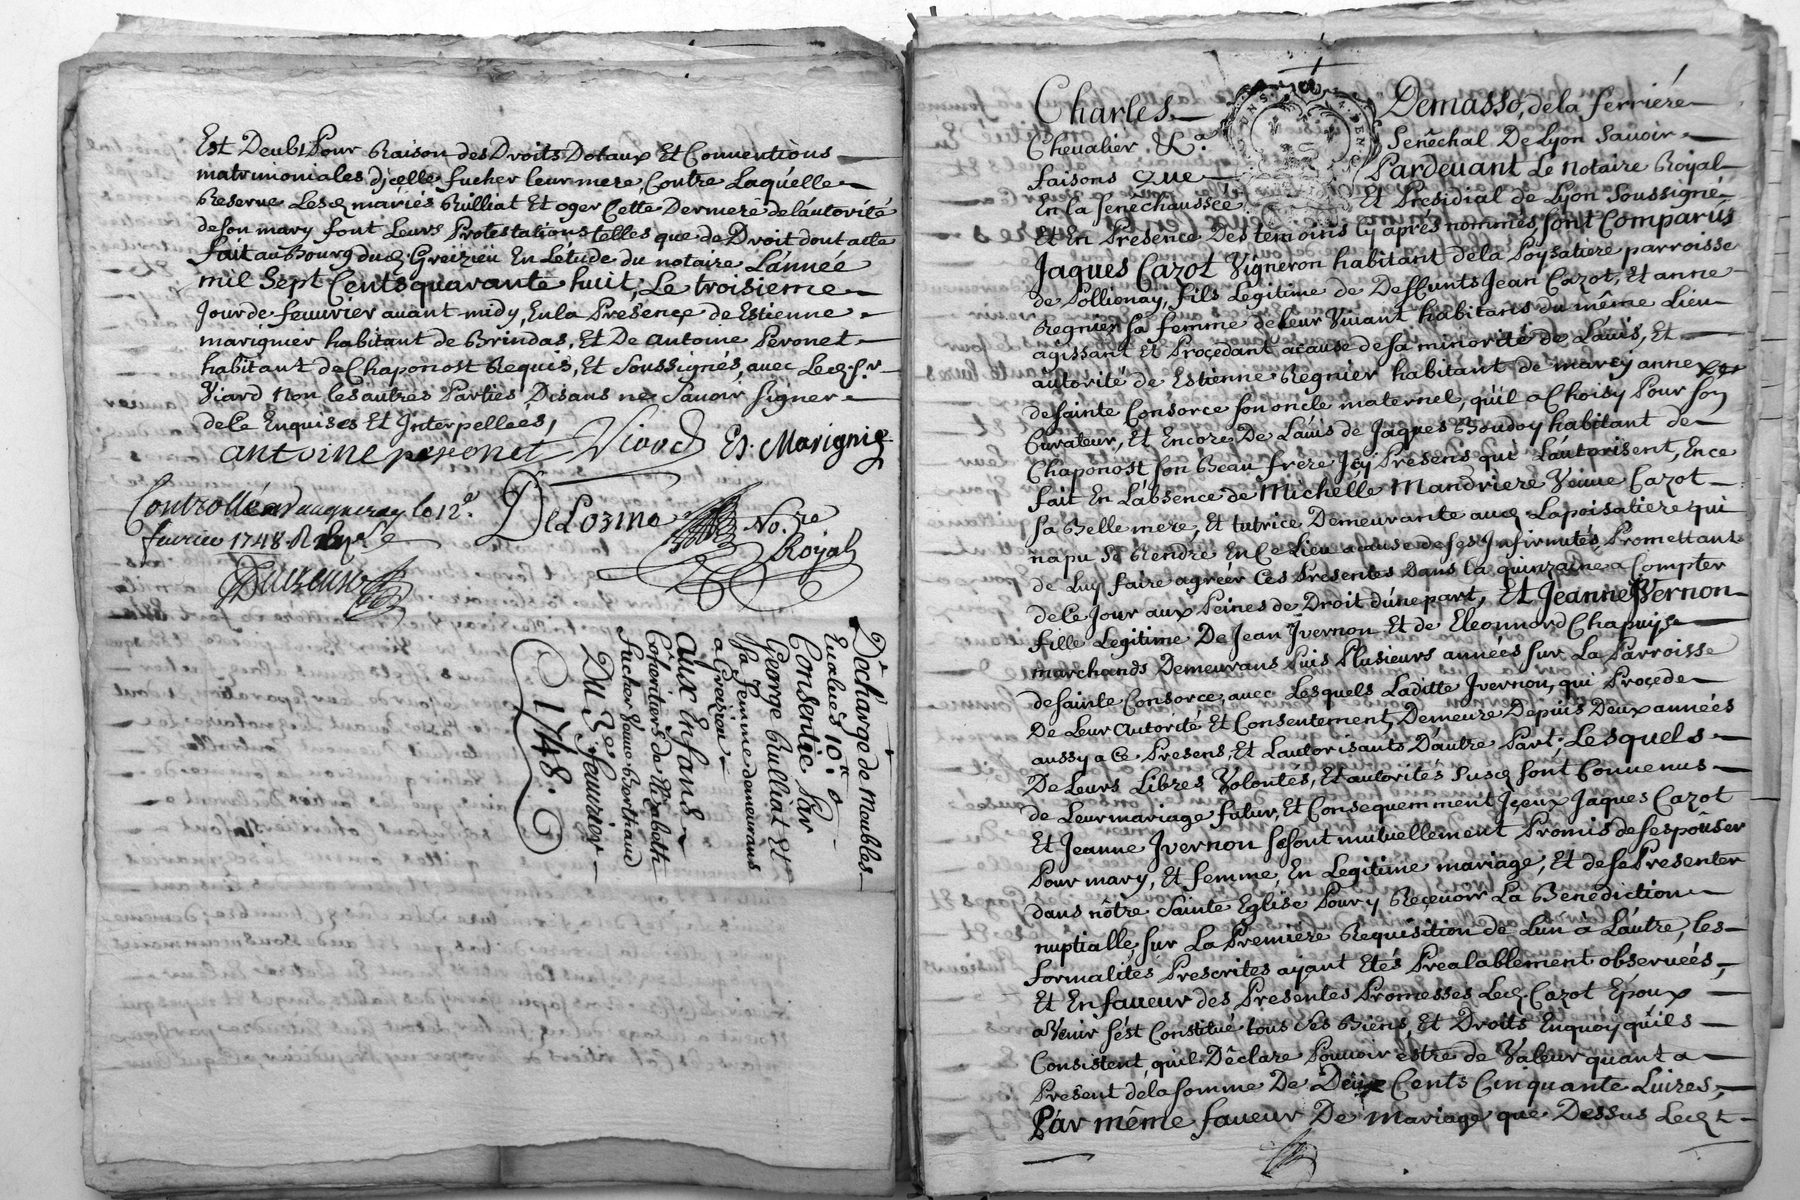 Est Deub! Pour Raison des Droits Dotaux Et Conventions
matrimoniales d'jcelle fucher leur mere, Contre Laquelle
Reserve Lesd. mariés Rulliat Et oger Cette Derniere de l'autorité
de son mary font Leurs Protestations telles que de Droit dont acte
fait au Bourg dud. Greizieu En L'étude du notaire L'année
mil Sept Cents quarante huit, Le troisieme
Jour de feuvrier avant midy, En la Présence de Estienne
marignier habitant de Brindas, Et De antoine Peronet
habitant de Chaponost Requis, Et Soussignés, avec Led. Sr.
Viard Non les autres Parties Disans ne Savoir signer
de Ce Enquises Et Interpellées,
antoine peronet Viard Es. Marignie
Controllé a Vaugneray le 12e.
fevrier 1748 R
DeLozima No.re
Royal
Décharge de Meubles
Evalués 10ll.
Consentie Par
George Rulliat Et
Sa femme demeurans
a Greizieu
aux Enfans
Cohéritiers de
fucher Veuve Bertraud
Du 3e. feuvrier
1748.
Charles Demasso, de la ferriere
Chevalier &c.a Senêchal De Lyon Savoir
faisons Que Pardevant Le Notaire Royal
En la Senéchaussée Et Présidial de Lyon Soussigné
Et En Présence Des temoins cy après nommés, sont Comparüs
Jaques Cazot Vigneron habitant de la Poysatiere parroisse
de Pollionay, fils Legitime de Deffunts Jean Cazot, Et anne
Regnier sa femme de leur Vivant habitans du même Lieu
agissant Et Procedant acause de sa minorité de L'avis, Et
autorité de Estienne Regnier habitant de marcy anne
de sainte Consorce son oncle maternel, qu'il a Choisy Pour son
Curateur, Et Encore De L'avis de Jaques Boudoy habitant de
Chaponost son Beau frere Jcy Presens qui L'autorisent, En ce
fait En L'absence de Michelle Mandriere Veuve Cazot
sa Belle mere, Et tutrice Demeurante aud. Lapoisatiere qui
na pu se Rendre En Ce Lieu acause de ses Infirmités, Promettant
de Luy faire agréer Ces Présentes Dans la quinzaine a Compter
de Ce Jour aux Peines de Droit d'une part, Et Jeanne Jvernon
fille Legitime De Jean Jvernon Et de Eleonnard Chapuys
marchands Demeurans Puis Plusieurs années sur La Parroisse
de sainte Consorce, avec Lesquels Laditte Jvernon, qui Procede
De Leur Autorité Et Consentement, Demeure Depuis Deux années
aussy a Ce Presens, Et Lautorisants D'autre Part; Lesquels
De Leurs Libres Volontés, Et autorités Susd. sont Convenus
de Leur mariage futur, Et Consequemment Jçeux Jaques Cazot
Et Jeanne Jvernon se sont mutuellement Promis de s'espoûser
Pour mary, Et femme, En Legitime mariage, Et de se Présenter
dans nôtre Sainte Eglise Pour y Reçevoir La Benediction
nuptialle, sur La Premiere Requisition de L'un à L'autre, les
formalités Prescrites ayant Etés Prealablement observeés,
Et En faveur des Présentes Promesses Led. Cazot Epoux
a Venir s'est Constitué tous Ses Biens, Et Droits Enquoy qu'ils
Consistent, qu'il Dêclare Pouvoir estre de Valeur quant a
Present de la somme De Deux Cents Cinquante Livres,
Par même faveur De Mariage que Dessus Led.t